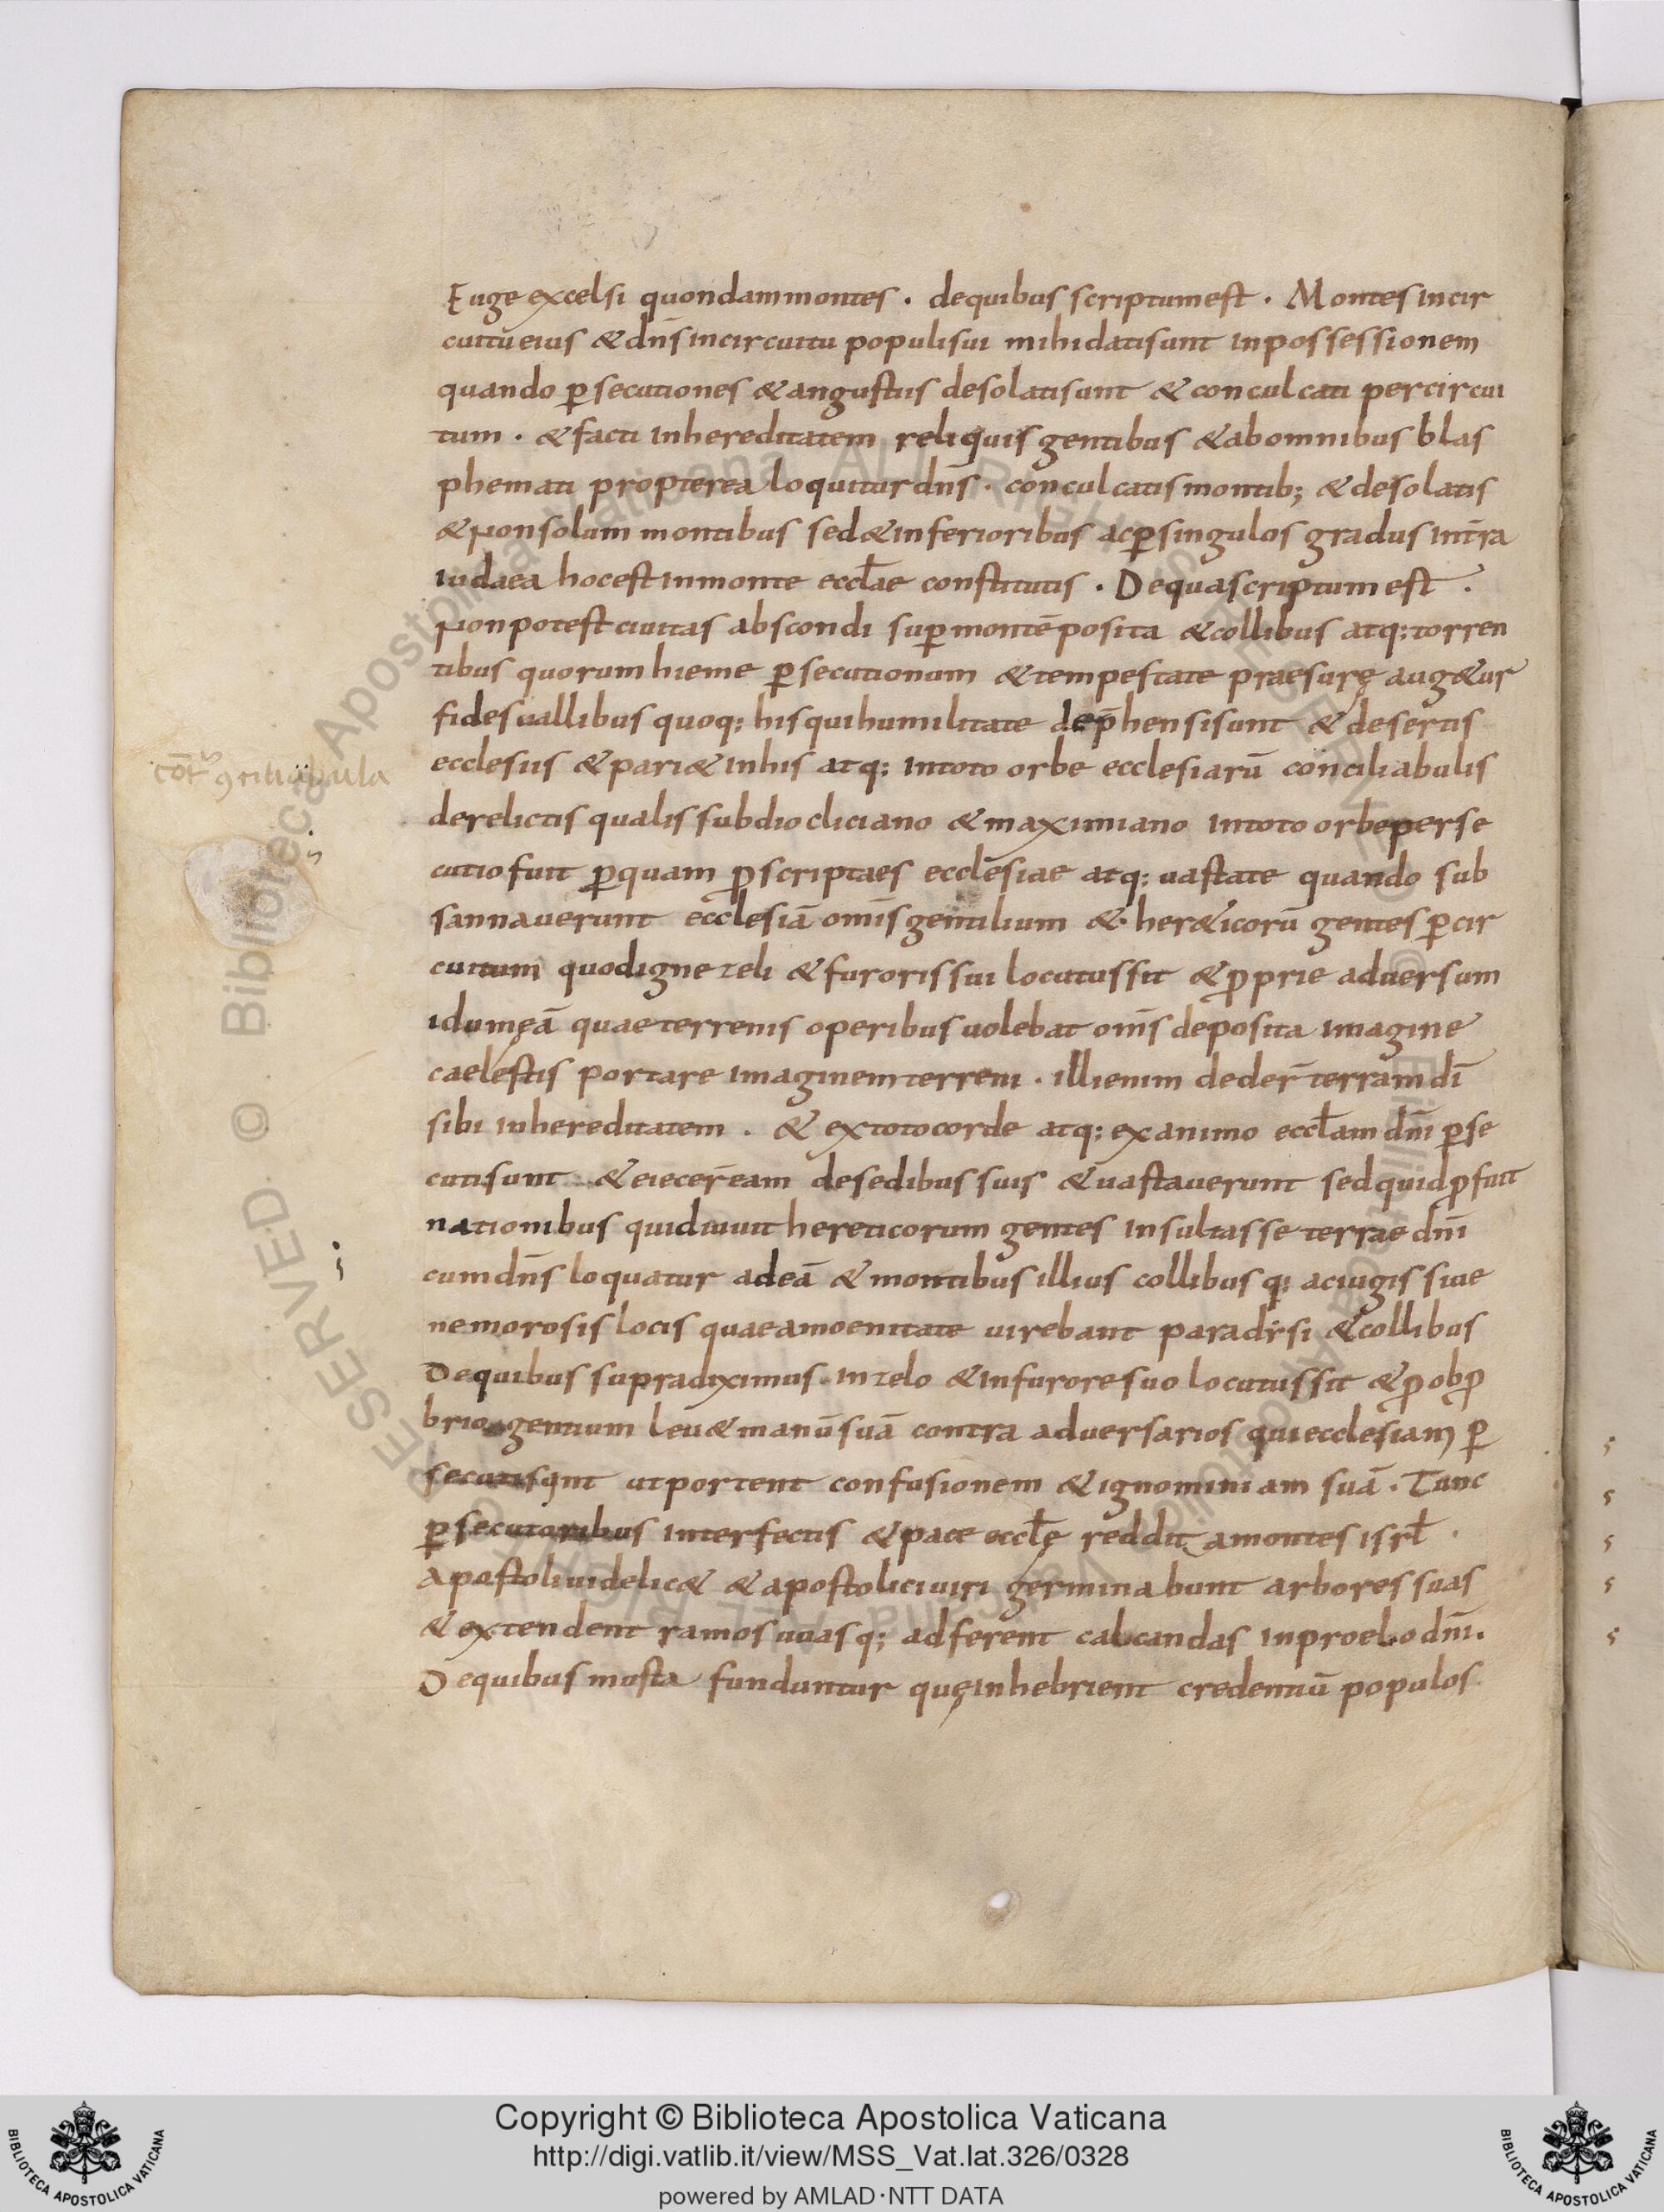 Euge excelsi quondam montes · de quibus scriptum est · Montes in cir
cuitu eius & dn̄s in circuitu populi sui mihi dati sunt in possessionem
quando p̱secutiones & angustiis desolati sunt & conculcati per circui
tum · & facti in hereditatem reliquis gentibus & ab omnibus blas
phemati propterea loquitur dn̄s · conculcatis montib; & desolatis
& Non solum montibus sed & inferioribus ac p̱ singulos gradus intr̄a
iudaea hoc est in monte eccłae constitutis · De qua scriptum est ·
Non potest civitas abscondi sup̱ montē posita & collibus atq; torren
tibus quorum hieme p̱secutionum & tempestate praesurę aug&ur
fides vallibus quoq; his qui humilitate dep̄hensi sunt & desertis
ecclesiis & pari&inhis atq; in toto orbe ecclesiarū conciliabulis
derelictis qualis sub diocliciano & maximiano in toto orbe perse
cutio fuit p̱ quam p̱scriptaes ecclesiae atq; vastate quando sub
sannaverunt ecclesiā om̄is gentilium & her&icorū gentes p̱ cir
cuitum quo digne zeli & furoris sui locutus sit & p̱prie adversum
idumęā quae terrenis operibus volebat om̄s deposita imagine
caelestis portare imaginem terreni · illi enim deder̄ terram dī
sibi in hereditatem · & ex toto corde atq; ex animo eccłam dn̄i p̱se
cuti sunt & eiecer̄ eam de sedibus suis & vastaverunt sed quid p̱fuit
nationibus quid iuvit hereticorum gentes insultasse terrae dn̄i
cum dn̄s loquatur ad eā & montibus illius collibusq; ac iugis sive
nemorosis locis quae amoenitate virebant paradysi & collibus
De quibus supra diximus · in zelo & in furore suo locutus sit & p̱ obp̱
brio gentium lev&manū suā contra adversarios qui ecclesiam p̱
secuti sunt ut portent confusionem & ignominiam suā · Tunc
p̱secutoribus interfectis & pace eccłę reddita montes isrł ·
Apostoli videlic& & apostolici viri germinabunt arbores suas
& extendent ramos uvasq; adferent calcandas in proelo dn̄i.
De quibus mosta funduntur quę inhebrient credentiū populos
Copyright © Biblioteca Apostolica Vaticana
http://digi.vatlib.it/view/MSS_Vat.lat.326/0328
powered by AMLAD·NTT DATA
BIBLIOTECA APOSTOLICA VATICANA
BIBLIOTECA APOSTOLICA VATICANA